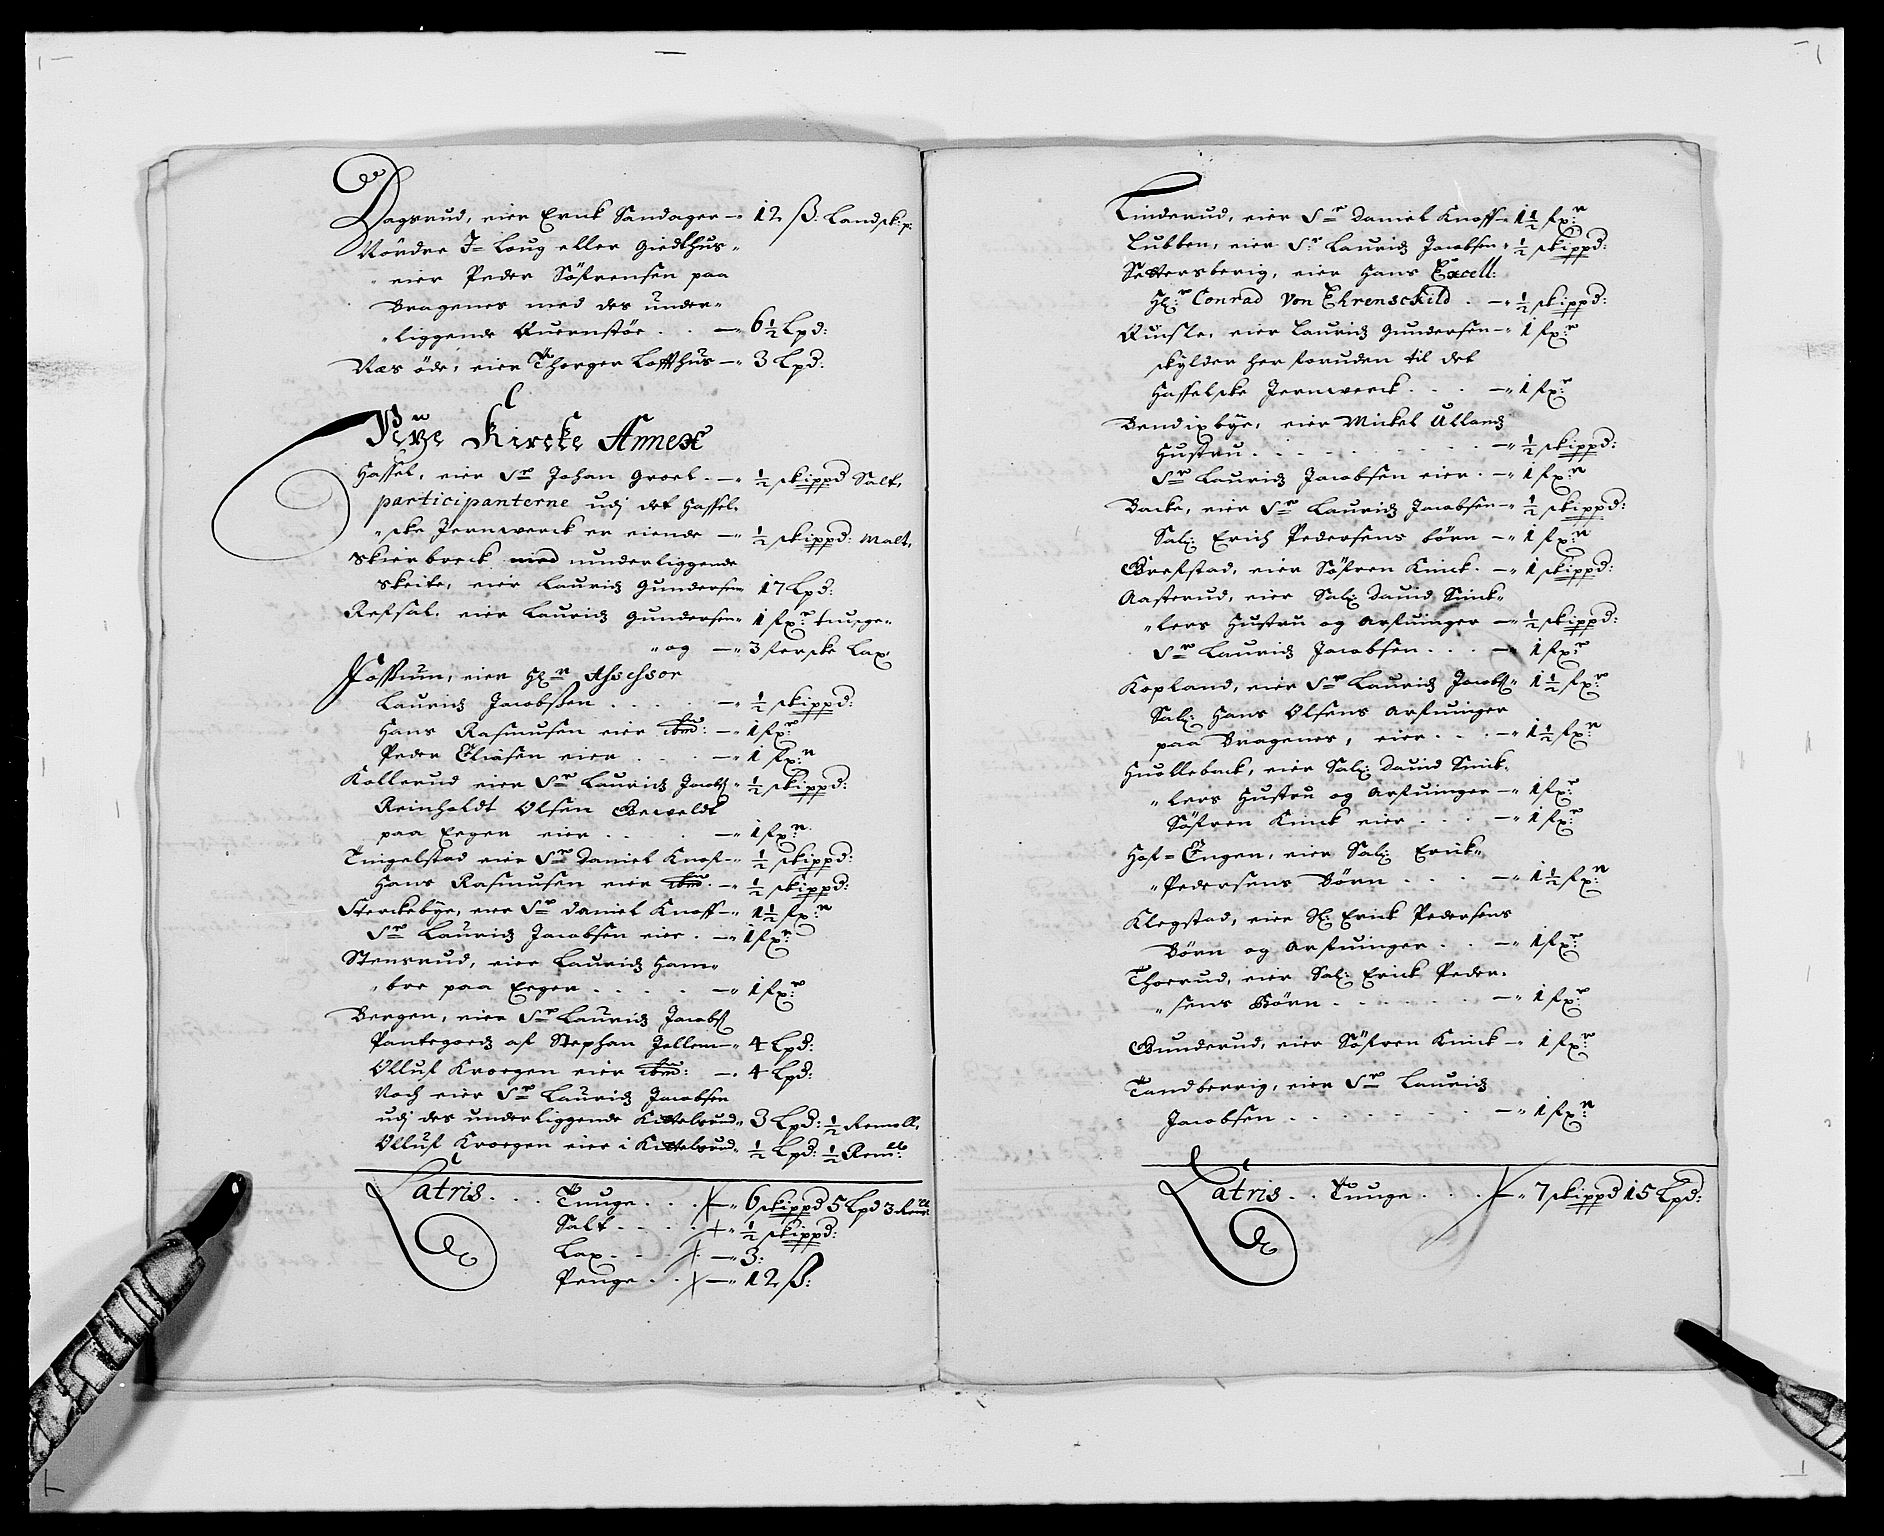 Dagsrud, eier Erick Sandager — 12 ß: Landsk:p:
Nördre J= Loug eller Giedthus„
„ eier Peder Söfrensen paa
Bragenes med des under„
„liggende Quernstöe . . — 6½ Lpd:
Næs öde, eier Thorger Loffthus — 3 Lpd:
Kircke Annex
Hassel, eier Sr Johan Groel. — ½ skippd Salt,
participanterne udj det Hassel„
„ske Jernwerck er eiende — ½ skippd: Malt,
Skierbreck med underliggende
Skeite, eier Lauridz Gundersen 17 Lpd:
Refsal, eier Lauridz Gundersen„ 1 fxr tunge„
„og — 3 ferske Lax,
Fossum, eier Hr Assessor
Lauridz Jacobsen . . . . — ½ skippd:
Hans Rasmusen eier ibm: — 1 fxr
Peder Eliasen eier . . . — 1 fxr
Kollerud eier Sr Lauridz Jacobs „ ½ skippd:
Reinholdt Olsen
paa Eeger eier . . . . — 1 fxr
Tingelstad eier Sr Daniel Knof — ½ skippd:
Hans Rasmusen eier ibm. — ½ skippd:
Sterckebye, eier Sr Daniel Knoff — 1½ fxr
Sr Lauridz Jacobsen eier. — 1 fxr
Stensrud, eier Lauridz Ham„
„bre paa Eeger . . . . — 1 fxr
Bergen, eier Sr Lauridz Jacobs
Pantegodz af Stephan Jellem — 4 Lpd:
Olluf Kroegen eier ibm: — 4 Lpd:
Noch eier Sr Lauridz Jacobsen
udj des underliggende Kittelsrud„ 3 Lpd: ½ Remoll,
Olluf Kroegen eier i Kittelsrud„ ½ Lpd: ½ Rem:
Latris . . . Tunge . . . — 6 skippd 5 Lpd 3 Rem
Salt . . . . ½ skippd:
Lax . . . . — 3:
Penge . . — 12 ß:
Linderud, eier Sr Daniel Knoff — 1½ fxr
Lubben, eier Sr Lauridz Jacobsen „ ½ skippd:
Settersberig, eier Hans Excell:
Hr: Conrad Von Ehrenschild . — ½ skippd:
eier Lauridz Gundersen — 1 fxr
skylder her foruden til det
Hasselske Jernwerck . . . — 1 fxr
Bendixbye, eier Mickel Ullandz
Hustru . . . . . . . — ½ skippd:
Sr Lauridz Jacobsen eier. — 1 fxr
Backe, eier Sr Lauridz Jacobsen — ½ skippd:
Sal: Erich Pedersens börn — 1 fxr
Grefstad, eier Söfren Kinck. — 1 skippd:
Aasterud, eier Sal: David Sinck„
„lers Hustru og Arfuinger — ½ skippd:
Sr Lauridz Jacobsen . . . — 1 fxr
Kopland, eier Sr Lauridz Jacobs „ 1½ fxr
Sal: Hans Olsens Arfuinger
paa Bragenes, eier . . . — 1½ fxr
Hvolleback, eier Sal: David Sinck„
„lers Hustru og Arfuinger — 1 fxr
Söfren Kinck eier . . . — 1 fxr
Hof= Engen, eier Sal: Erick„
„Pedersens Börn . . . . — 1½ fxr
Klegstad, eier Sl: Erick Pedersens
Börn og Arfuinger . . — 1 fxr
Thorrud, eier Sal: Erick Peder„
„sens Börn . . . . . . — 1 fxr
Gunderud, eier Söfren Kinck — 1 fxr
Tandberrig, eier Sr Lauridz
Jacobsen . . . . . . . — 1 fxr
Latris . . Tunge . . . — 7 skippd 15 Lpd: